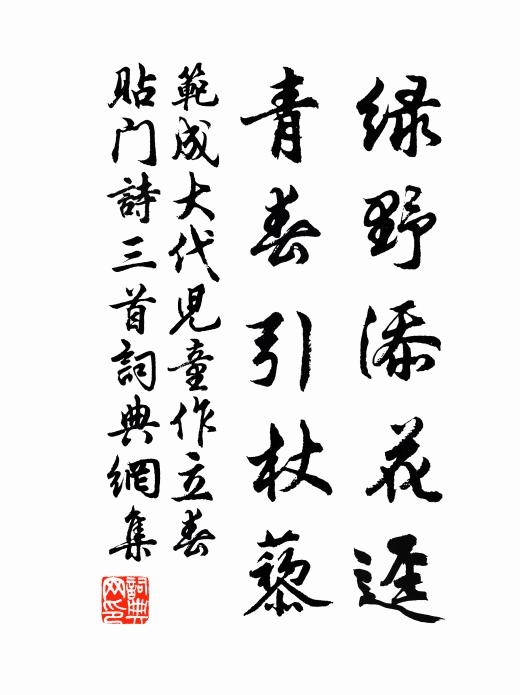 绿野添花迳
青春引杖藜
範成大代児童作立春
貼门詩三首詞典網集
詞典网印